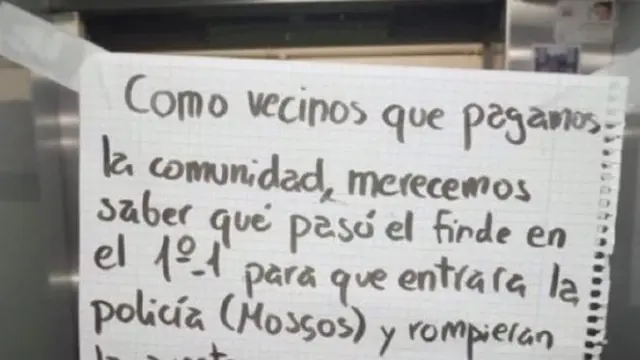 Como vecinos que pagamos
la comunidad, merecemos
saber qué pasó el finde en
el 1º-1 para que entrara la
policía (Mossos) y rompieran